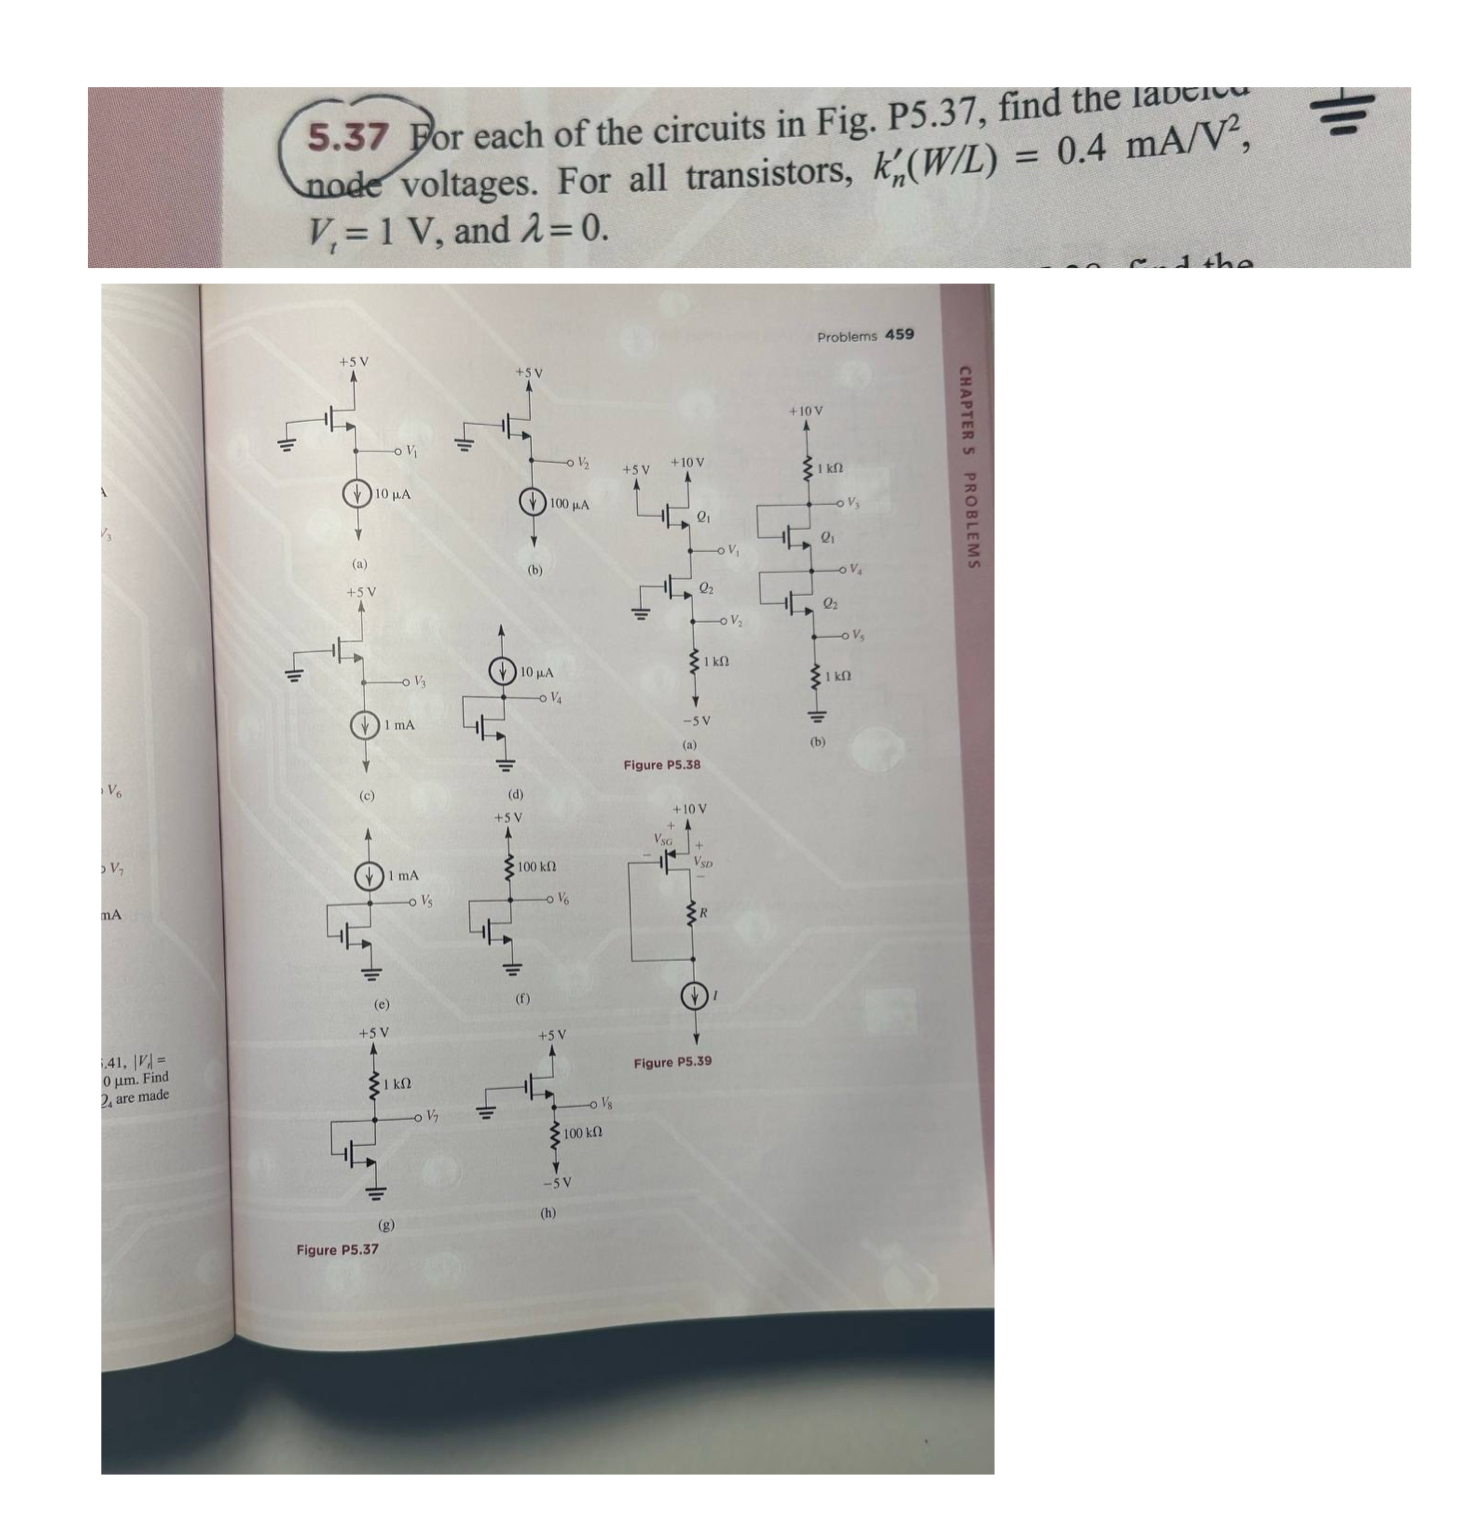 5.37 For each of the circuits in Fig. P5.37, find the labeled
node voltages. For all transistors, k′n(W/L) = 0.4 mA/V²,
Vt = 1 V, and λ = 0.
the
Problems 459
CHAPTER 5 PROBLEMS
+5 V
V1
10 µA
(a)
+5 V
V2
100 µA
(b)
+5 V
V3
1 mA
(c)
10 µA
V4
(d)
1 mA
V5
(e)
+5 V
100 kΩ
V6
(f)
+5 V
1 kΩ
V7
(g)
+5 V
V8
100 kΩ
−5 V
(h)
Figure P5.37
+5 V
+10 V
Q1
V1
Q2
V2
1 kΩ
−5 V
(a)
+10 V
1 kΩ
V3
Q1
V4
Q2
V5
1 kΩ
(b)
Figure P5.38
+10 V
+
VSG
−
+
VSD
−
R
I
Figure P5.39
V3
V6
V7
mA
.41, |Vt| =
0 µm. Find
are made